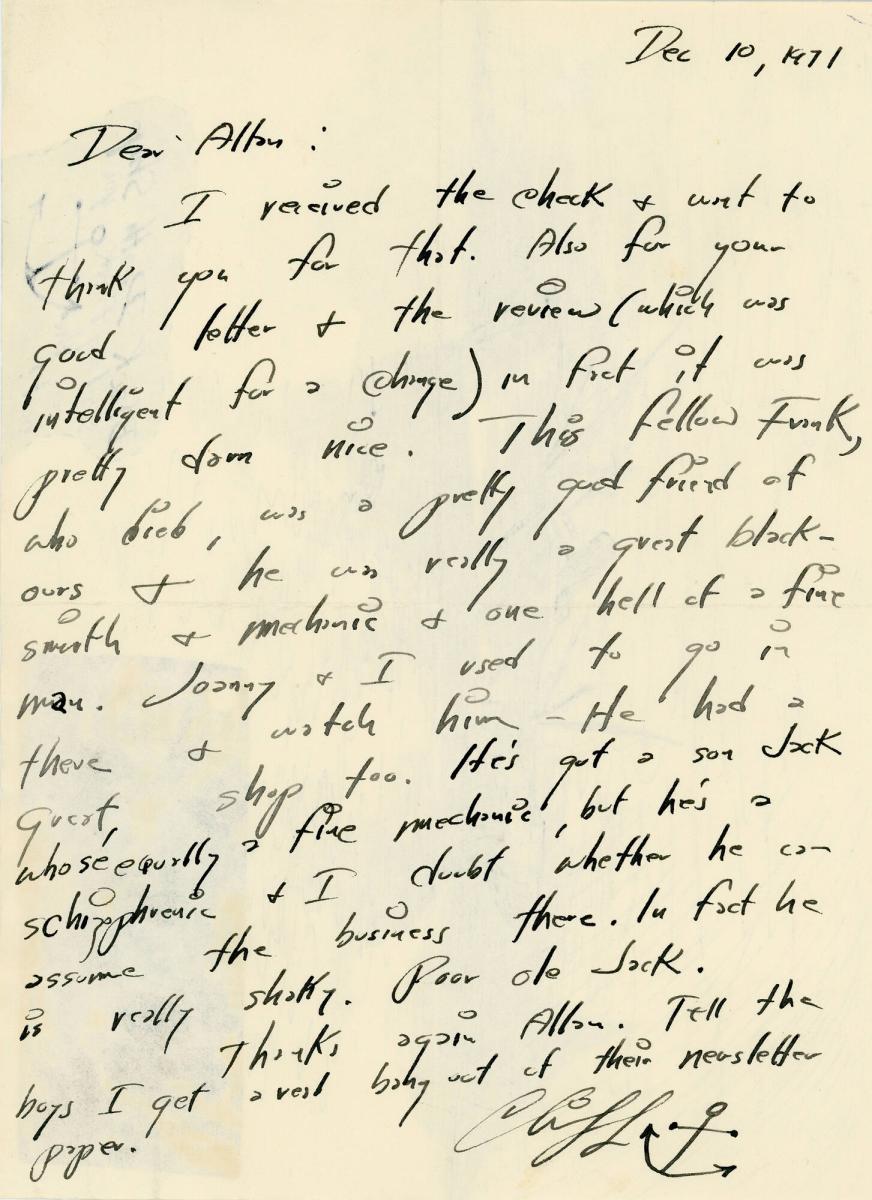 Dec 10, 1971
Dear Allan :
I received the check & want to
thank you for that. Also for your
good letter & the review (which was
intelligent for a change) in fact it was
pretty darn nice. This fellow Frank,
who died, was a pretty good friend of
ours & he was really a great black-
smith & mechanic & one hell of a fine
man. Joanny & I used to go in
there & watch him - He had a
Great, shop too. He's got a son Jack
whose equally a fine mechanic, but he's a
schizophrenic & I doubt whether he can
assume the business there. In fact he
is really shaky. Poor ole Jack.
Thanks again Allan. Tell the
boys I get a real bang out of their newsletter
paper.
Cliff